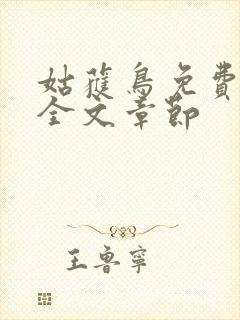 姑蒦鳥免費
全文章節
王魯寧